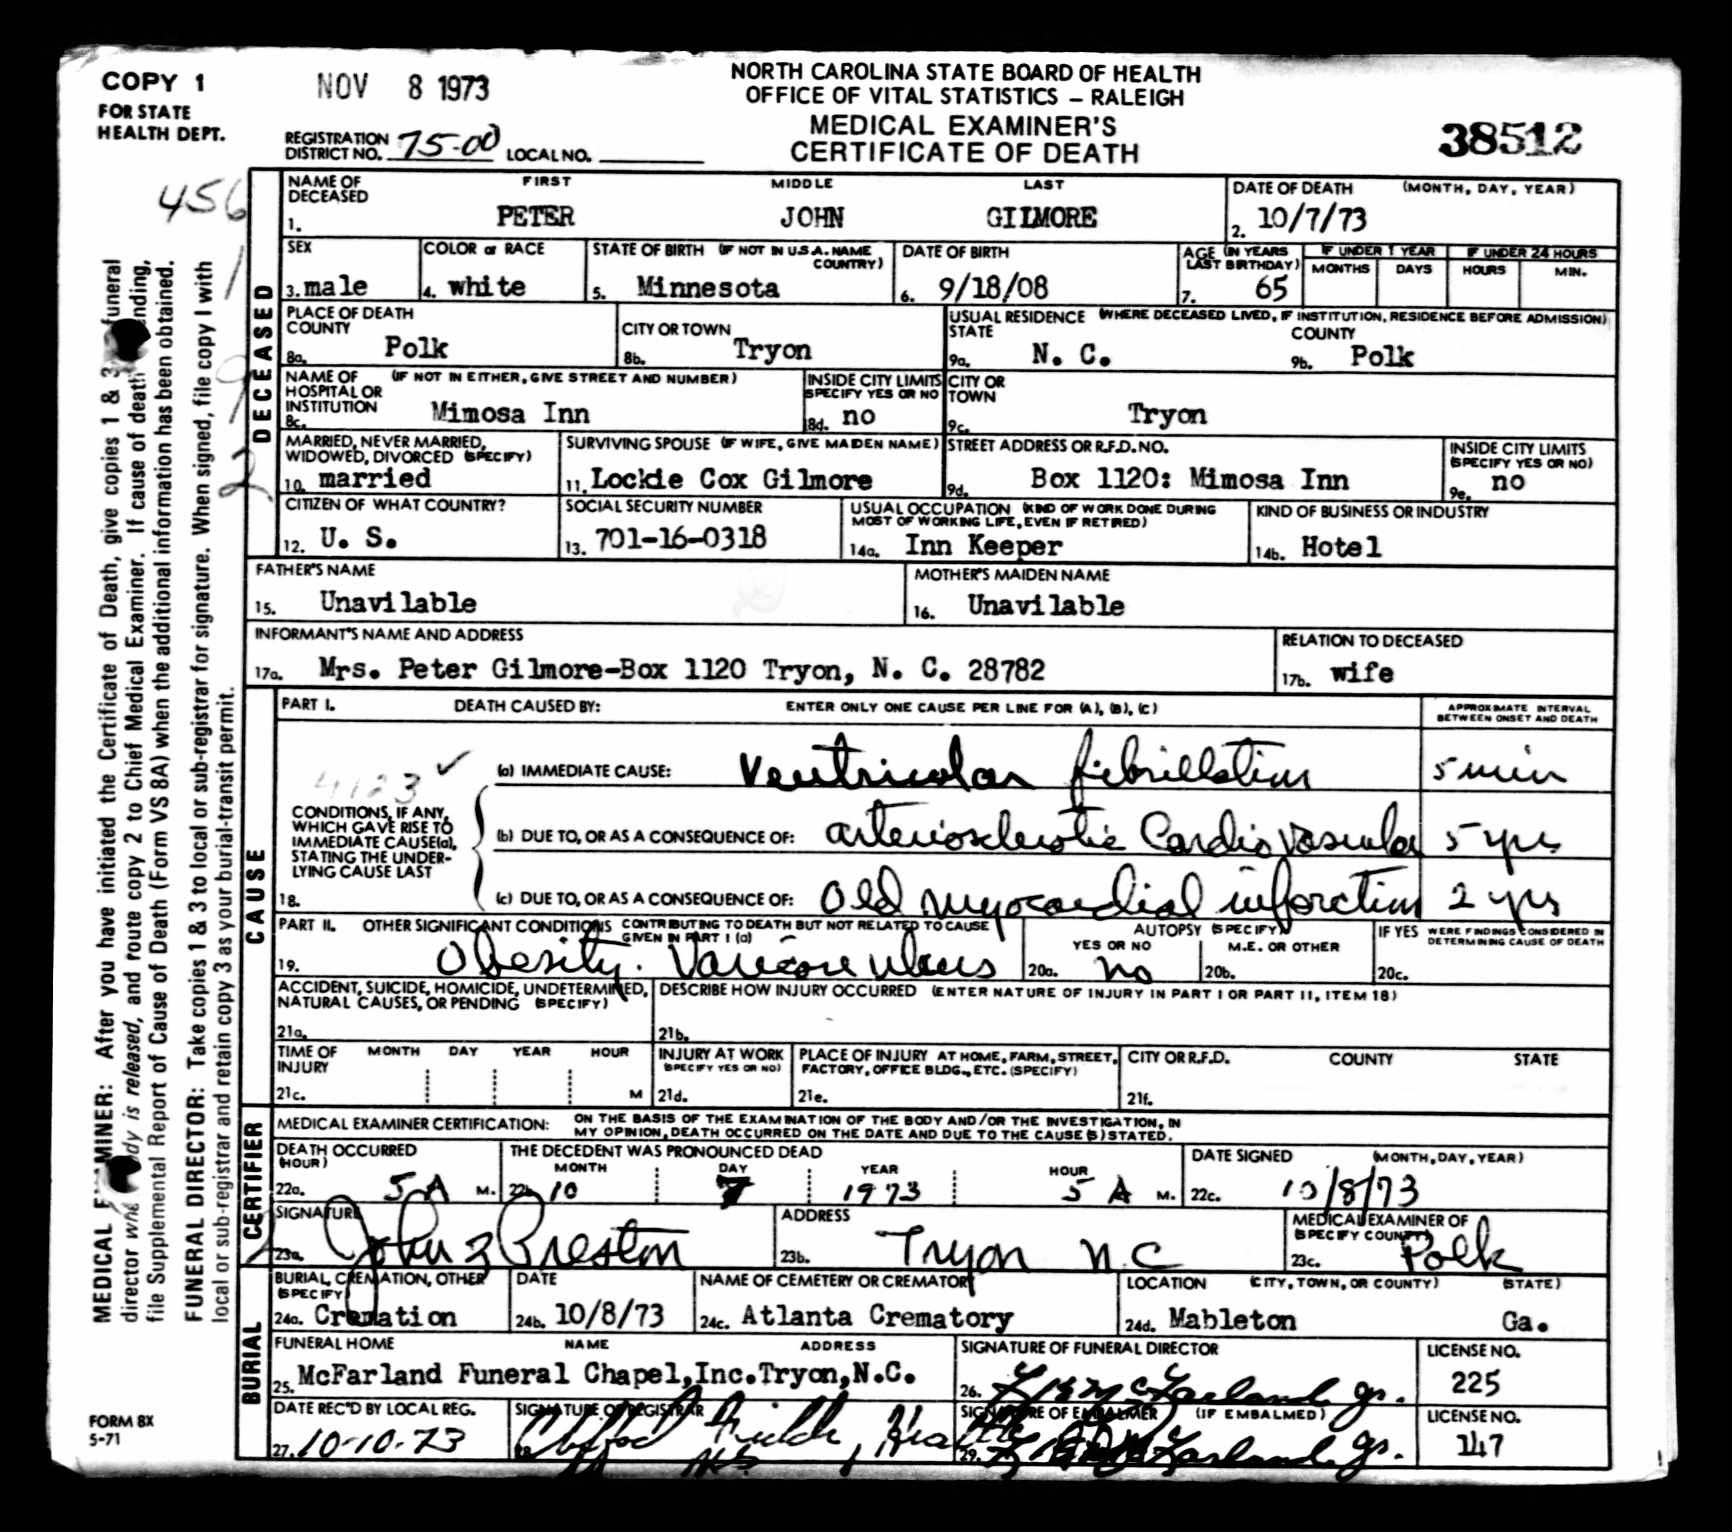 COPY 1
FOR STATE
HEALTH DEPT.
NOV 8 1973
NORTH CAROLINA STATE BOARD OF HEALTH
OFFICE OF VITAL STATISTICS – RALEIGH
MEDICAL EXAMINER'S
CERTIFICATE OF DEATH
38512
REGISTRATION DISTRICT NO. 75-00 LOCAL NO.
456
1
9
2
MEDICAL MINER: After you have initiated the Certificate of Death, give copies 1 & 3 funeral
director who dy is released, and route copy 2 to Chief Medical Examiner. If cause of death nding,
file Supplemental Report of Cause of Death (Form VS 8A) when the additional information has been obtained.
FUNERAL DIRECTOR: Take copies 1 & 3 to local or sub-registrar for signature. When signed, file copy 1 with
local or sub-registrar and retain copy 3 as your burial-transit permit.
DECEASED
NAME OF DECEASED FIRST MIDDLE LAST
1. PETER JOHN GILMORE
DATE OF DEATH (MONTH, DAY, YEAR)
2. 10/7/73
SEX
3. male
COLOR or RACE
4. white
STATE OF BIRTH (IF NOT IN U.S.A. NAME COUNTRY)
5. Minnesota
DATE OF BIRTH
6. 9/18/08
AGE (IN YEARS LAST BIRTHDAY)
7. 65
IF UNDER 1 YEAR
MONTHS DAYS
IF UNDER 24 HOURS
HOURS MIN.
PLACE OF DEATH
COUNTY
8a. Polk
CITY OR TOWN
8b. Tryon
USUAL RESIDENCE (WHERE DECEASED LIVED, IF INSTITUTION, RESIDENCE BEFORE ADMISSION)
STATE
9a. N. C.
COUNTY
9b. Polk
NAME OF HOSPITAL OR INSTITUTION (IF NOT IN EITHER, GIVE STREET AND NUMBER)
8c. Mimosa Inn
INSIDE CITY LIMITS
SPECIFY YES OR NO
8d. no
CITY OR TOWN
9c. Tryon
MARRIED, NEVER MARRIED,
WIDOWED, DIVORCED (SPECIFY)
10. married
SURVIVING SPOUSE (IF WIFE, GIVE MAIDEN NAME)
11. Lockie Cox Gilmore
STREET ADDRESS OR R.F.D. NO.
9d. Box 1120: Mimosa Inn
INSIDE CITY LIMITS
(SPECIFY YES OR NO)
9e. no
CITIZEN OF WHAT COUNTRY?
12. U. S.
SOCIAL SECURITY NUMBER
13. 701-16-0318
USUAL OCCUPATION (KIND OF WORK DONE DURING
MOST OF WORKING LIFE, EVEN IF RETIRED)
14a. Inn Keeper
KIND OF BUSINESS OR INDUSTRY
14b. Hotel
FATHER'S NAME
15. Unavilable
MOTHER'S MAIDEN NAME
16. Unavilable
INFORMANT'S NAME AND ADDRESS
17a. Mrs. Peter Gilmore-Box 1120 Tryon, N. C. 28782
RELATION TO DECEASED
17b. wife
CAUSE
PART I. DEATH CAUSED BY: ENTER ONLY ONE CAUSE PER LINE FOR (A), (B), (C)
APPROXIMATE INTERVAL
BETWEEN ONSET AND DEATH
4123 ✓
(a) IMMEDIATE CAUSE: Ventricular fibrillation 5 min
CONDITIONS, IF ANY,
WHICH GAVE RISE TO
IMMEDIATE CAUSE(a),
STATING THE UNDER-
LYING CAUSE LAST
(b) DUE TO, OR AS A CONSEQUENCE OF: arteriosclerotic Cardio Vascular 5 yrs
18. (c) DUE TO, OR AS A CONSEQUENCE OF: Old myocardial infarction 2 yrs
PART II. OTHER SIGNIFICANT CONDITIONS CONTRIBUTING TO DEATH BUT NOT RELATED TO CAUSE
GIVEN IN PART I (a)
19. Obesity. Varicose ulcers
AUTOPSY (SPECIFY)
YES OR NO
20a. no
M.E. OR OTHER
20b.
IF YES WERE FINDINGS CONSIDERED IN
DETERMINING CAUSE OF DEATH
20c.
ACCIDENT, SUICIDE, HOMICIDE, UNDETERMINED,
NATURAL CAUSES, OR PENDING (SPECIFY)
21a.
DESCRIBE HOW INJURY OCCURRED (ENTER NATURE OF INJURY IN PART I OR PART II, ITEM 18)
21b.
TIME OF INJURY MONTH DAY YEAR HOUR
21c. M
INJURY AT WORK
(SPECIFY YES OR NO)
21d.
PLACE OF INJURY AT HOME, FARM, STREET,
FACTORY, OFFICE BLDG., ETC. (SPECIFY)
21e.
CITY OR R.F.D. COUNTY STATE
21f.
CERTIFIER
MEDICAL EXAMINER CERTIFICATION: ON THE BASIS OF THE EXAMINATION OF THE BODY AND/OR THE INVESTIGATION, IN
MY OPINION, DEATH OCCURRED ON THE DATE AND DUE TO THE CAUSE(S) STATED.
DEATH OCCURRED
(HOUR)
22a. 5 A M.
THE DECEDENT WAS PRONOUNCED DEAD
MONTH DAY YEAR HOUR
22b. 10 7 1973 5 A M.
DATE SIGNED (MONTH, DAY, YEAR)
22c. 10/8/73
SIGNATURE
23a. John Z Preston
ADDRESS
23b. Tryon N.C
MEDICAL EXAMINER OF
(SPECIFY COUNTY)
23c. Polk
BURIAL
BURIAL, CREMATION, OTHER
(SPECIFY)
24a. Cremation
DATE
24b. 10/8/73
NAME OF CEMETERY OR CREMATORY
24c. Atlanta Crematory
LOCATION (CITY, TOWN, OR COUNTY) (STATE)
24d. Mableton Ga.
FUNERAL HOME NAME ADDRESS
25. McFarland Funeral Chapel, Inc. Tryon, N.C.
SIGNATURE OF FUNERAL DIRECTOR
26. McFarland Jr.
LICENSE NO.
225
DATE REC'D BY LOCAL REG.
27. 10-10-73
SIGNATURE OF REGISTRAR
28.
SIGNATURE OF EMBALMER (IF EMBALMED)
29. McFarland Jr.
LICENSE NO.
147
FORM 8X
5-71